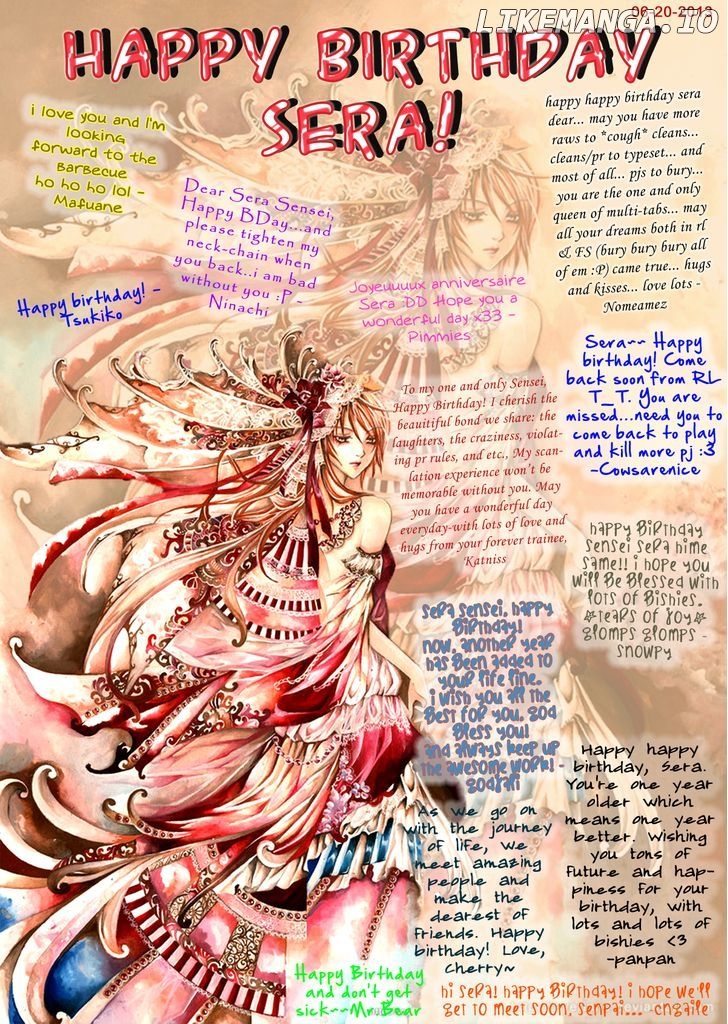 06-20-2013
LIKEMANGA.IO
HAPPY BIRTHDAY
SERA!
i love you and I'm
looking
forward to the
Barbecue
ho ho ho lol -
Mafuane
Dear Sera Sensei,
Happy BDay...and
please tighten my
neck-chain when
you back..i am bad
without you :P -
Ninachi
happy happy birthday sera
dear... may you have more
raws to *cough* cleans...
cleans/pr to typeset... and
most of all... pjs to bury...
you are the one and only
queen of multi-tabs... may
all your dreams both in rl
& FS (bury bury bury all
of em :P) came true... hugs
and kisses... love lots -
Nomeamez
Happy birthday! -
Tsukiko
Joyeuuuux anniversaire
Sera :DD Hope you a
wonderful day x33 -
Pimmies
Sera~~ Happy
birthday! Come
back soon from RL
T_T. You are
missed...need you to
come back to play
and kill more pj :3
-Cowsarenice
To my one and only Sensei,
Happy Birthday! I cherish the
beautiful bond we share; the
laughters, the craziness, violat-
ing pr rules, and etc., My scan-
lation experience won't be
memorable without you. May
you have a wonderful day
everyday-with lots of love and
hugs from your forever trainee,
Katniss
happy Birthday
sensei sera hime
same!! i hope you
will Be Blessed with
lots of Bishies.
☆tears of joy☆
glomps glomps -
snowpy
sera sensei, happy
Birthday!
now, another year
has Been added to
your life line.
i wish you all the
Best for you. god
Bless you!
and always keep up
the awesome work! -
godsari
Happy happy
birthday, Sera.
You're one year
older which
means one year
better. Wishing
you tons of
future and hap-
piness for your
birthday, with
lots and lots of
bishies <3
-panpan
As we go on
with the journey
of life, we
meet amazing
people and
make the
dearest of
friends. Happy
birthday! Love,
Cherry~
Happy Birthday
and don't get
sick~~Mr.Bear
hi sera! happy Birthday! i hope we'll
get to meet soon, senpai... -